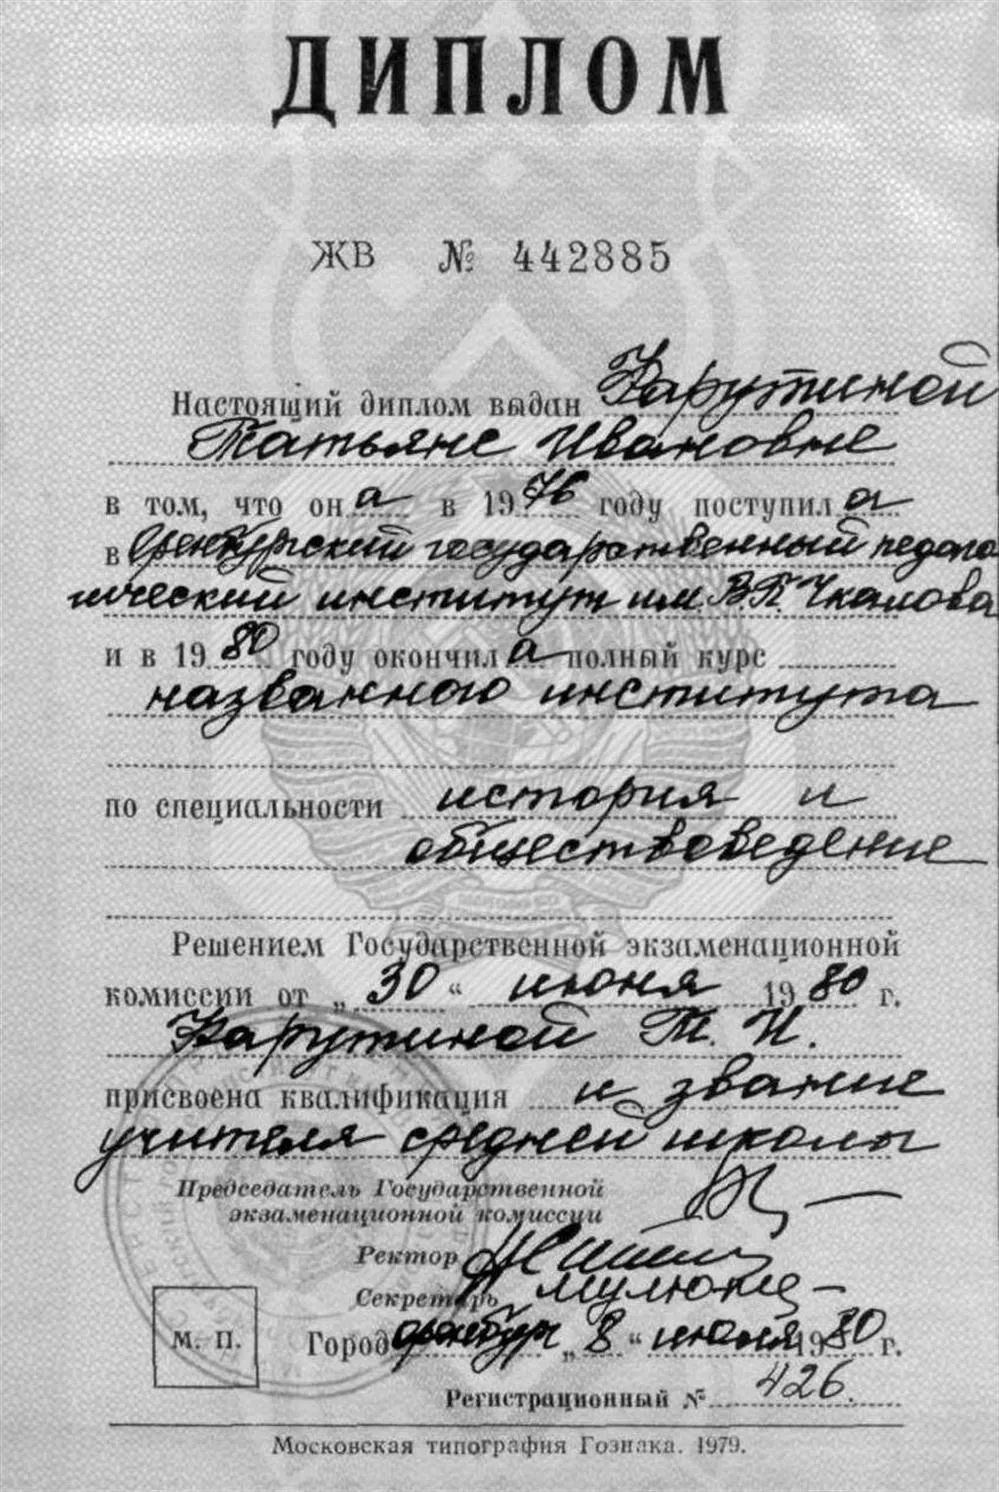 ДИПЛОМ
ЖВ № 442885
Настоящий диплом выдан Карутиной
Татьяне Ивановне
в том, что она в 1976 году поступила
в Оренбургский государственный педаго
гический институт им. В.П. Чкалова
и в 1980 году окончила полный курс
названного института
по специальности история и
обществоведение
Решением Государственной экзаменационной
комиссии от „30“ июня 1980 г.
Карутиной Т. И.
присвоена квалификация и звание
учителя средней школы
Председатель Государственной
экзаменационной комиссии
Ректор
Секретарь
М. П. Город Оренбург „8“ июля 1980 г.
Регистрационный № 426.
Московская типография Гознака. 1979.